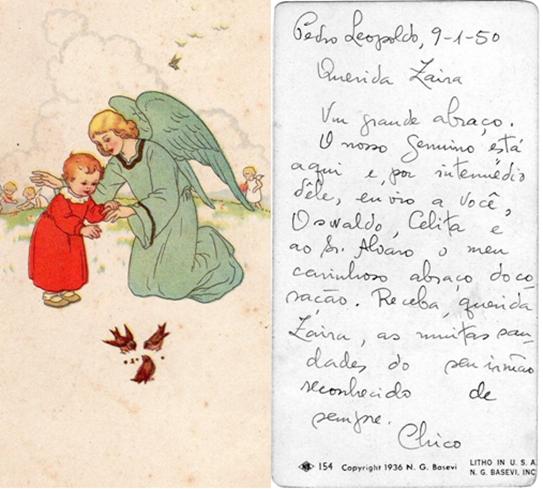 Pedro Leopoldo, 9-1-50
Querida Zaira
Um grande abraço.
O nosso Genuino está
aqui e, por intermédio
dêle, envio a você,
Oswaldo, Celita e
ao Sr. Alvaro o meu
carinhoso abraço do co-
ração. Receba, querida
Zaira, as muitas sau-
dades do seu irmão
reconhecido de
sempre.
Chico
154 Copyright 1936 N. G. Basevi
LITHO IN U. S. A.
N. G. BASEVI, INC